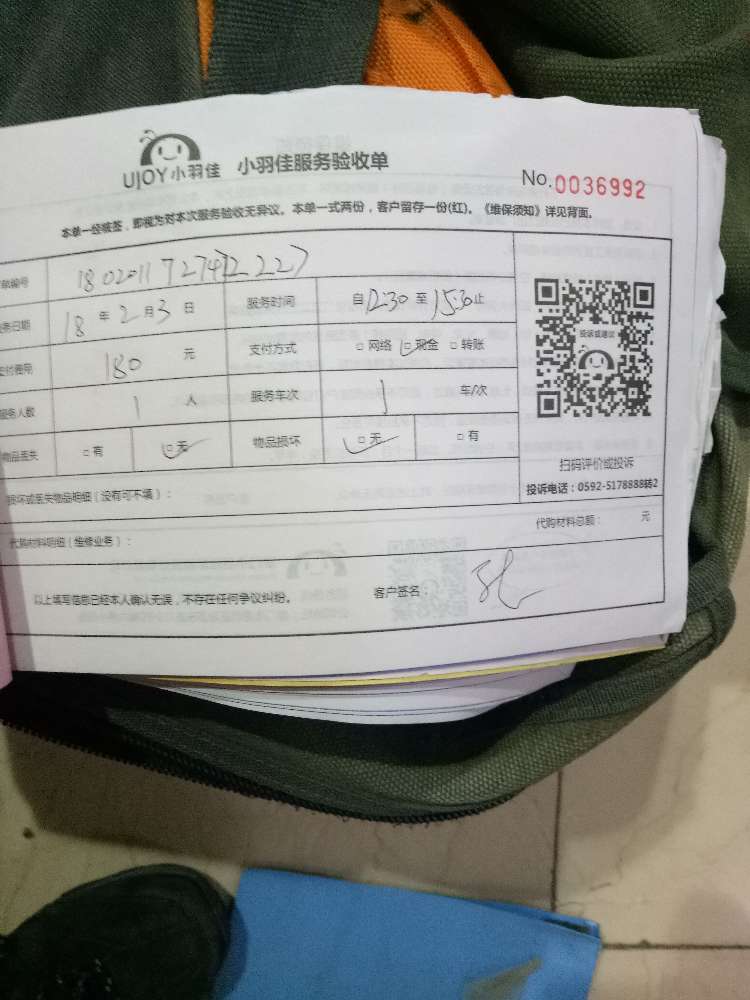 UJOY小羽佳 小羽佳服务验收单 No.0036992
本单一经被签，即视为对本次服务验收无异议。本单一式两份，客户留存一份(红)。《维保须知》详见背面。
单编号
务日期 18 年 2 月 3 日 服务时间 自 12:30 至 15:30 止
支付费用 180 元 支付方式 □ 网络 □ 现金 □ 转账
服务人数 1 人 服务车次 1 车/次
物品丢失 □ 有 □ 无 物品损坏 □ 无 □ 有
投诉或建议
扫码评价或投诉
投诉电话：0592-5178888转2
损坏或丢失物品明细（没有可不填）：
代购材料明细（维修业务）： 代购材料总额： 元
以上填写信息已经本人确认无误，不存在任何争议纠纷。 客户签名：